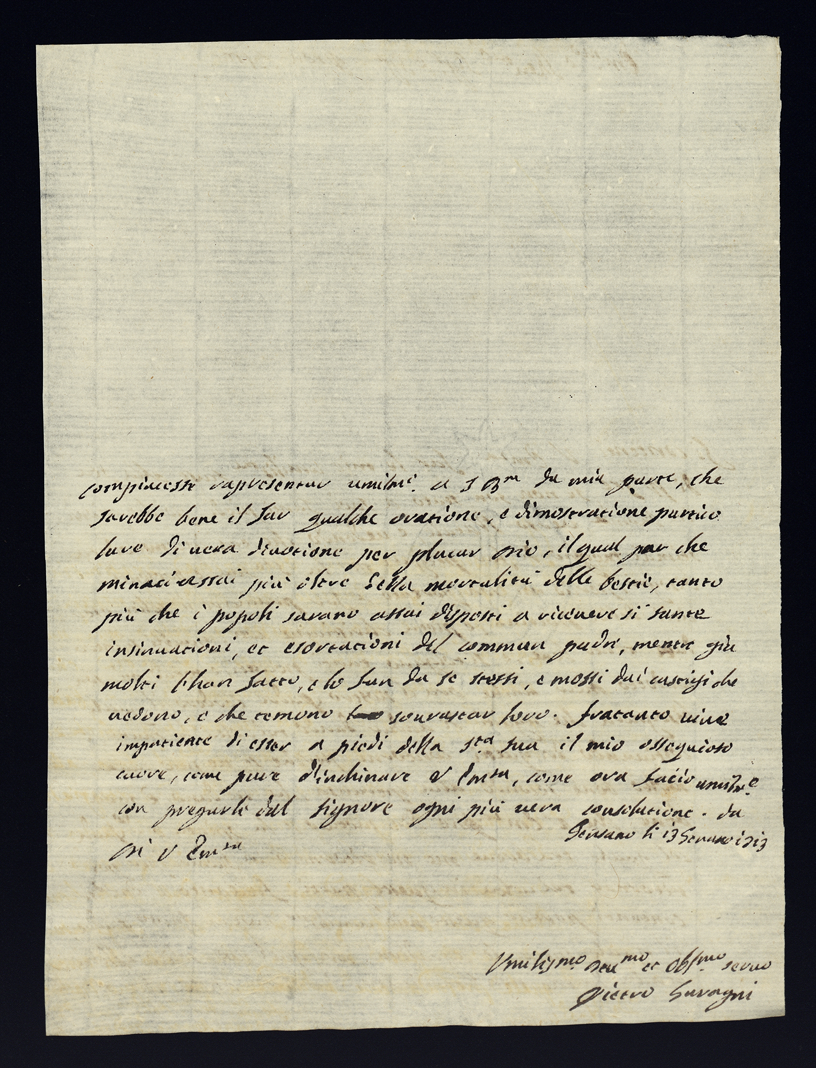 compiacessi rapresentar umilmte. a S Bne da mia parte, che
sarebbe bene il far qualche oratione, e dimostratione partico
lare di vera divotione per placar Dio, il qual par che
minaci assai più oltre della mortalità delle bestie, tanto
più che i popoli sarano assai disposti a ricevere si sante
insinuationi, et esortationi del commun padre, mentre già
molti l'han fatto, e lo fan da se stessi, e mossi dai castighi che
vedono, e che temono sovrastar loro. fratanto vive
impatiente di esser a piedi della Sta sua il mio ossequioso
cuore, come pure d'inchinare V Emza, come ora facio umilmte
con pregarle dal Signore ogni più vera consolatione. da
Gensano li 13 Genaro 1713
Di V Emza
Umilissmo. Devmo et Obbmo servo
Pietro